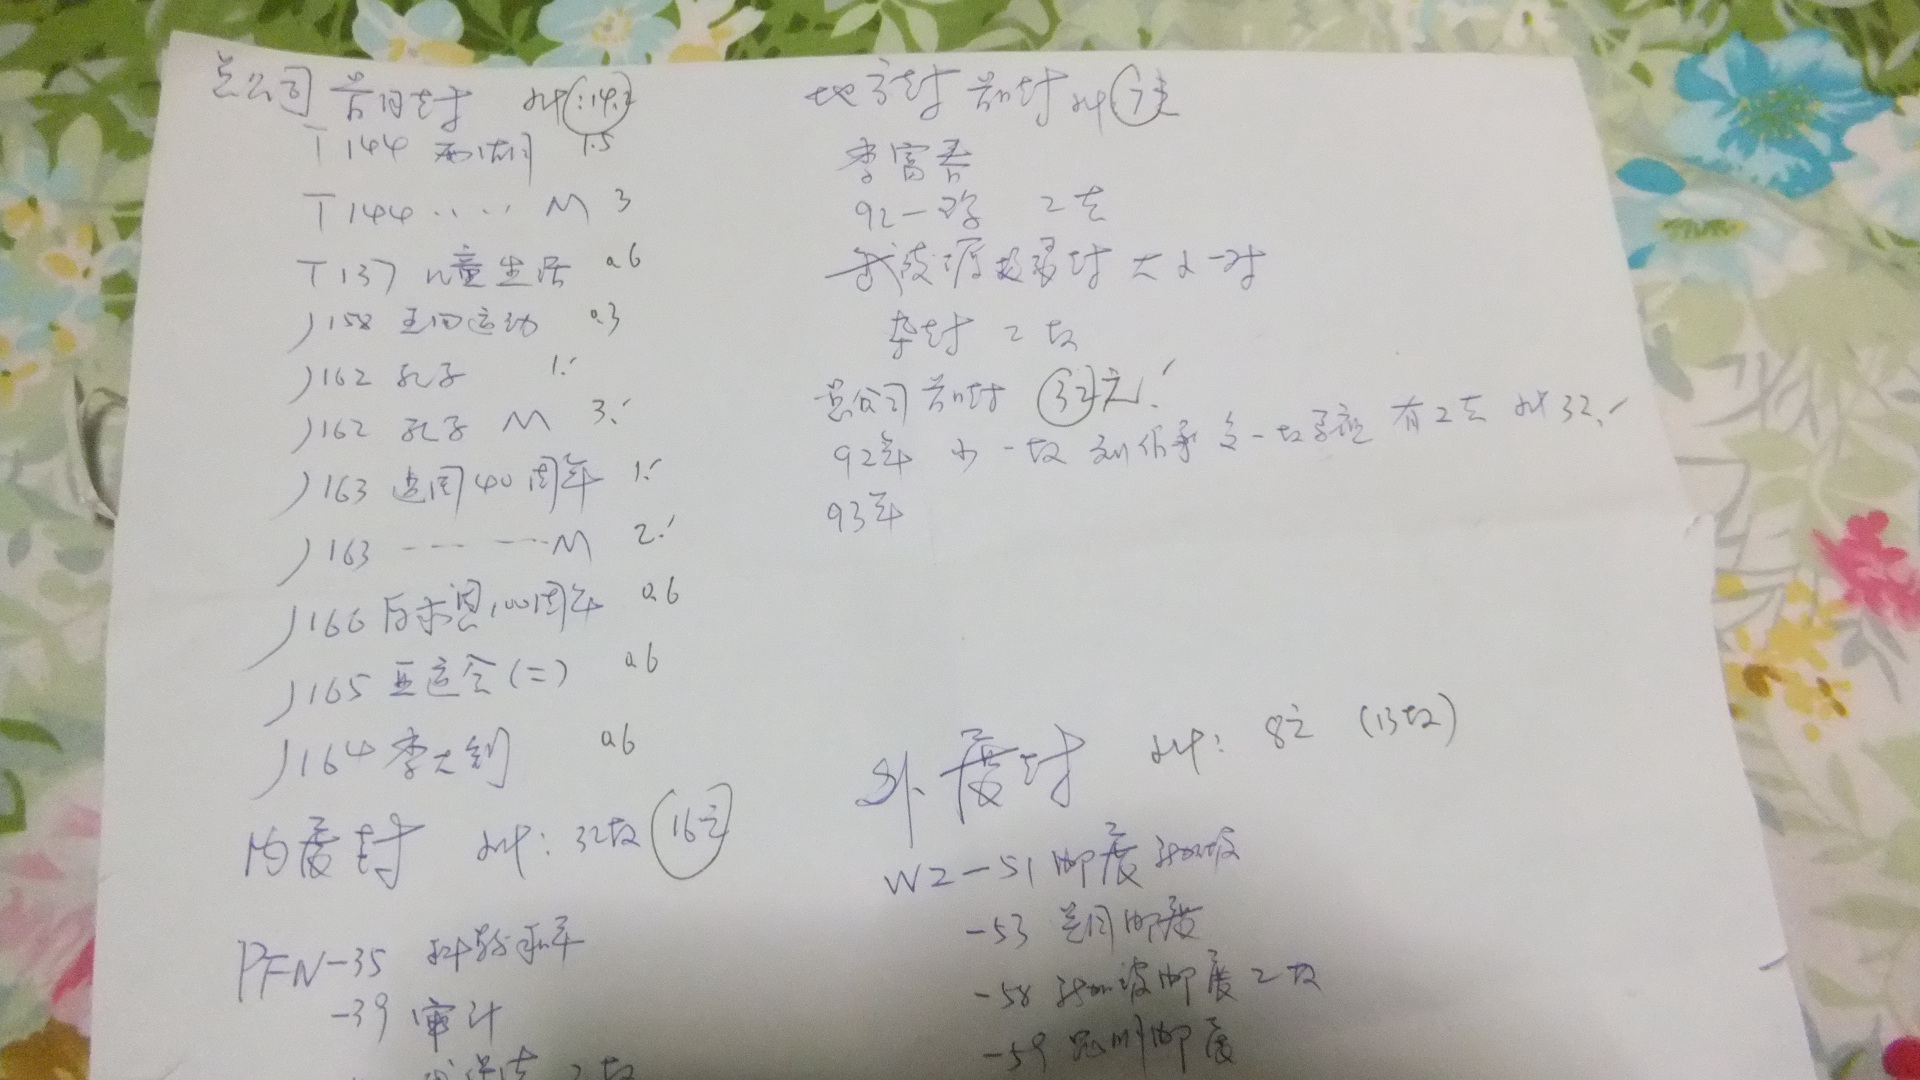 总公司 首日封 计:14.2
T144 西湖 1.5
T144 ..... M 3
T137 儿童生活 0.6
J158 全国运动 0.3
J162 孔子 1.-
J162 孔子 M 3.-
J163 建国40周年 1.-
J163 --- ---M 2.-
J166 白求恩100周年 0.6
J165 亚运会(二) 0.6
J164 李大钊 0.6
内展封 计: 32枚 16元
PFN-35 科教
-39 审计
2枚
地方封 首日封 计 7元
李富春
92一 2元
大小一对
杂封 2枚
总公司 首日封 32元.-
92年 少一枚 刘伯承 多一枚 有2元 计32.-
93年
外展封 计: 8元 (13枚)
WZ-51 邮展 新加坡
-53 美国邮展
-58 新加坡邮展 2枚
-59 邮展